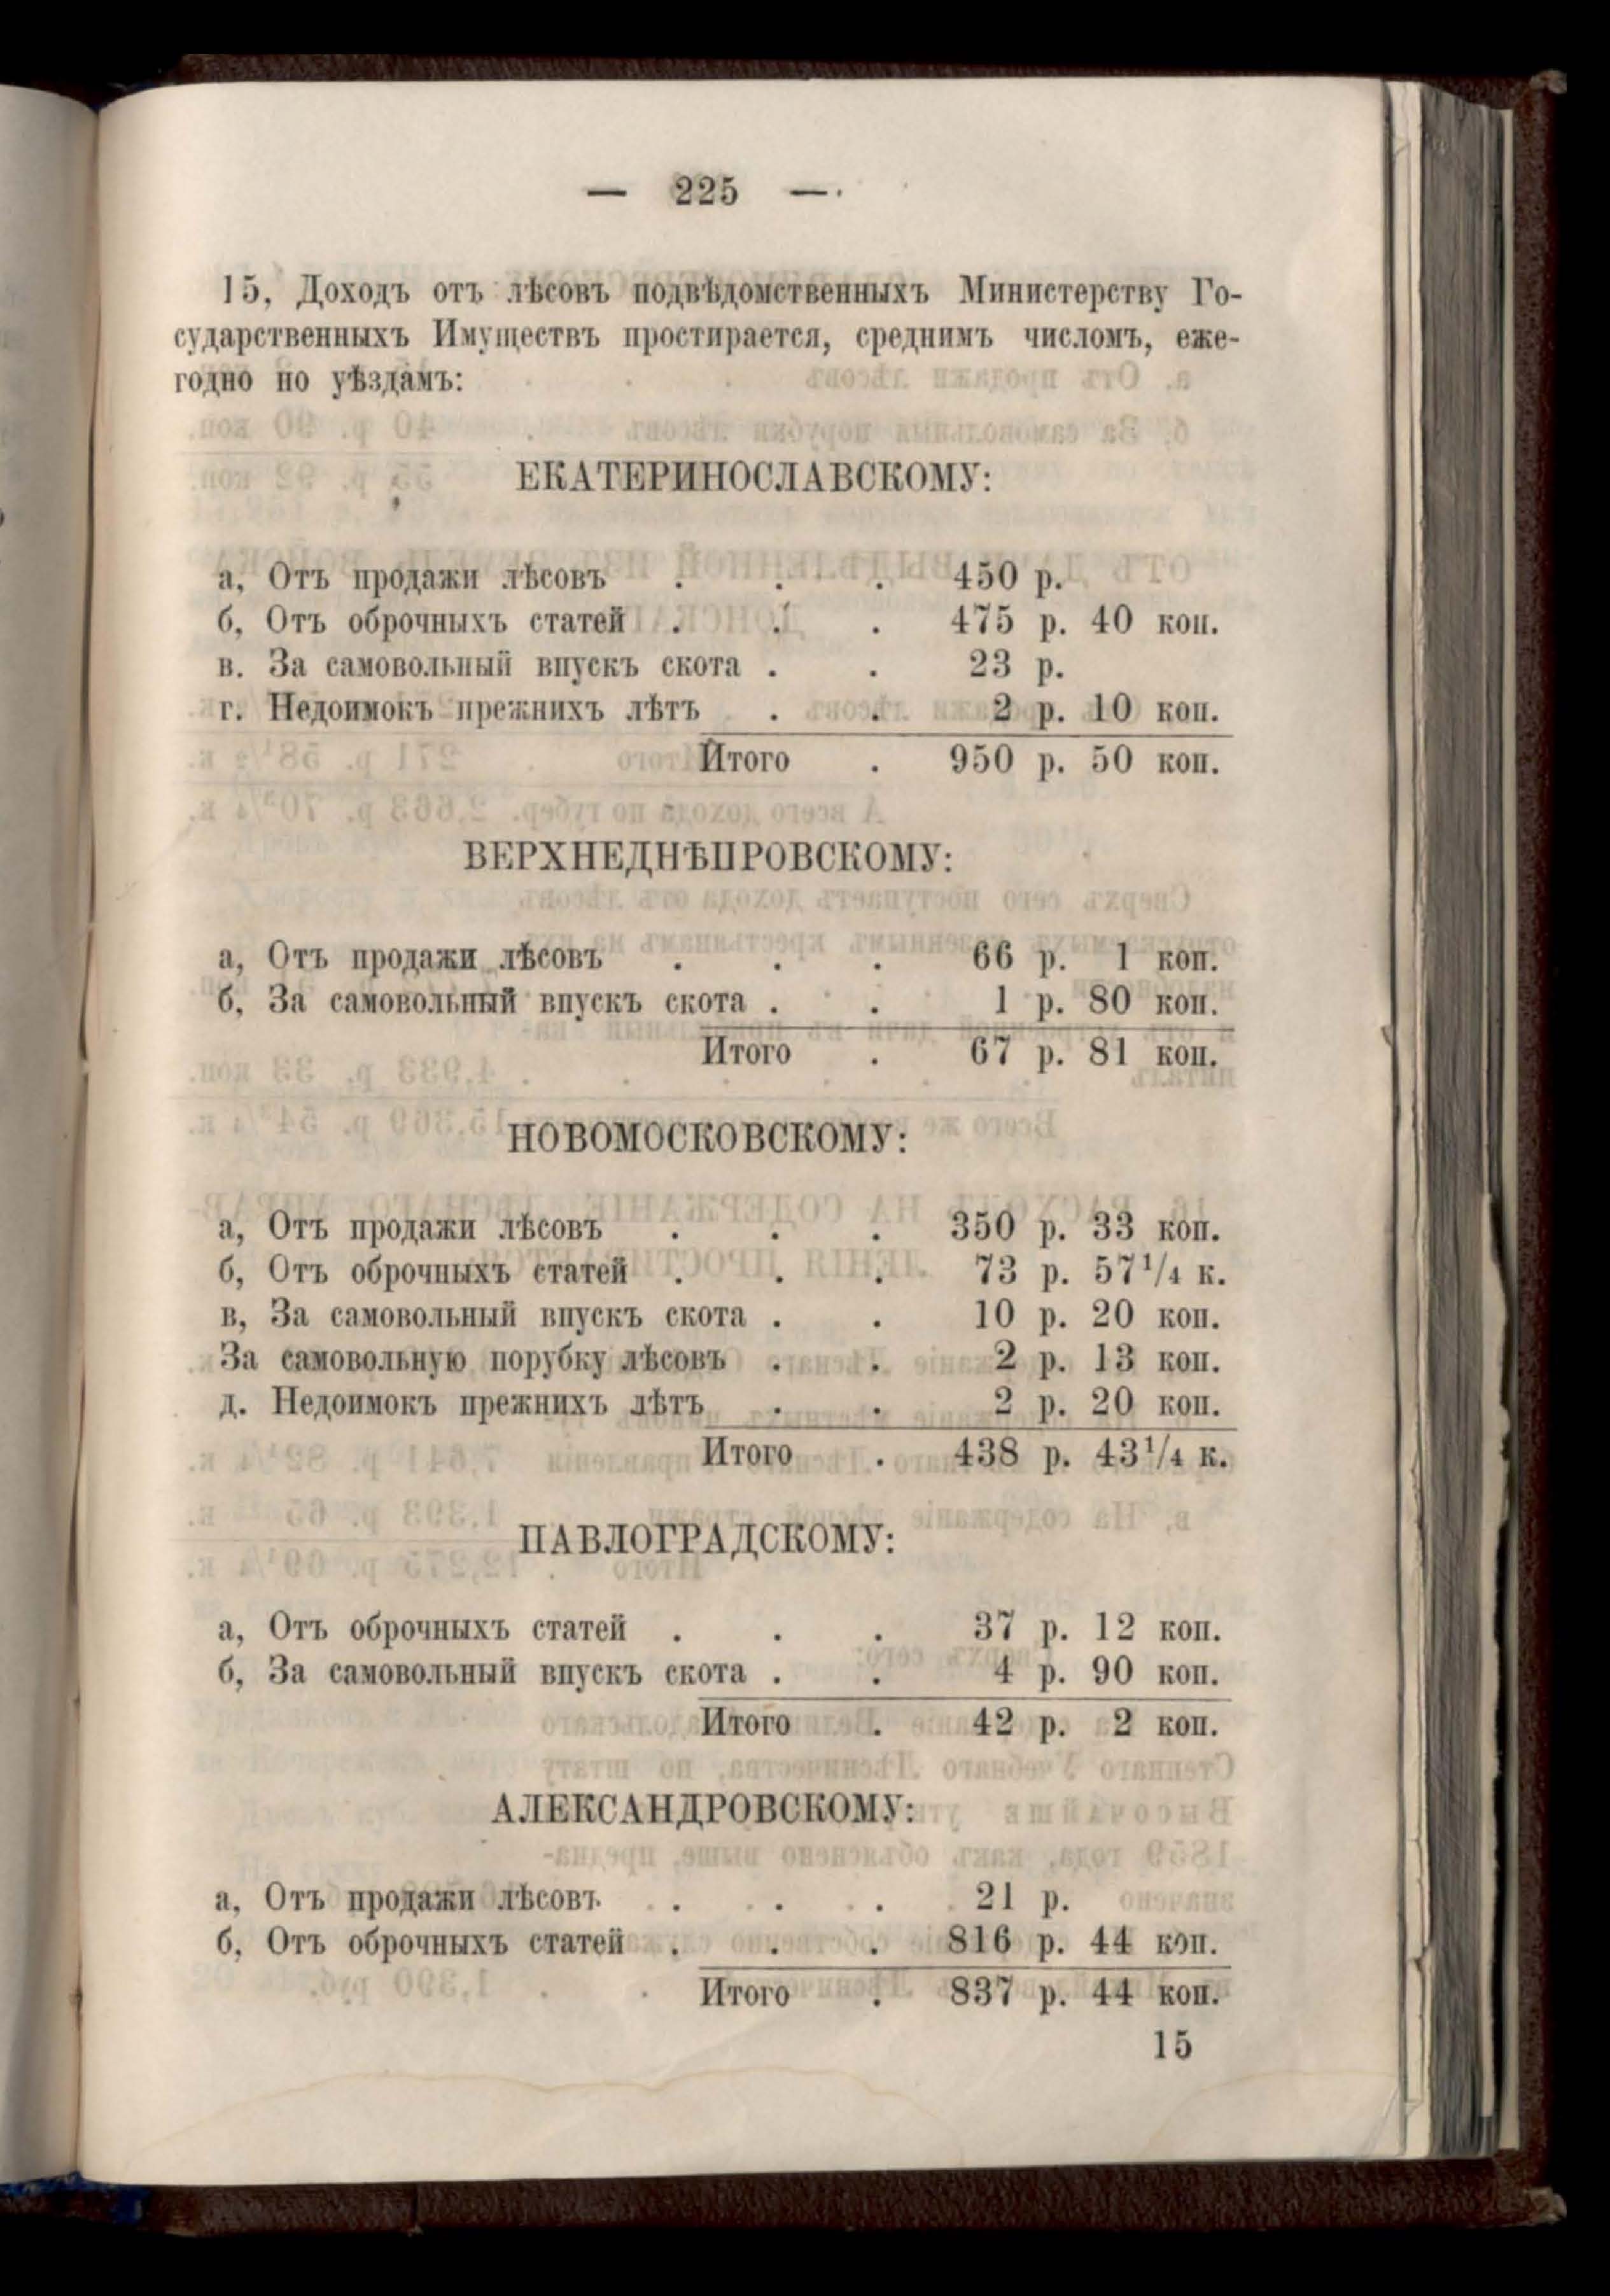 — 225 —
15, Доходъ отъ лѣсовъ подвѣдомственныхъ Министерству Го-
сударственныхъ Имуществъ простирается, среднимъ числомъ, еже-
годно по уѣздамъ:
ЕКАТЕРИНОСЛАВСКОМУ:
а, Отъ продажи лѣсовъ . . . 450 р.
б, Отъ оброчныхъ статей . . . 475 р. 40 коп.
в. За самовольный впускъ скота . . 23 р.
г. Недоимокъ прежнихъ лѣтъ . . 2 р. 10 коп.
Итого . 950 р. 50 коп.
ВЕРХНЕДНѢПРОВСКОМУ:
а, Отъ продажи лѣсовъ . . . 66 р. 1 коп.
б, За самовольный впускъ скота . . 1 р. 80 коп.
Итого . 67 р. 81 коп.
НОВОМОСКОВСКОМУ:
а, Отъ продажи лѣсовъ . . . 350 р. 33 коп.
б, Отъ оброчныхъ статей . . . 73 р. 57¹/₄ к.
в, За самовольный впускъ скота . . 10 р. 20 коп.
За самовольную порубку лѣсовъ . . 2 р. 13 коп.
д. Недоимокъ прежнихъ лѣтъ . . 2 р. 20 коп.
Итого . 438 р. 43¹/₄ к.
ПАВЛОГРАДСКОМУ:
а, Отъ оброчныхъ статей . . . 37 р. 12 коп.
б, За самовольный впускъ скота . . 4 р. 90 коп.
Итого . 42 р. 2 коп.
АЛЕКСАНДРОВСКОМУ:
а, Отъ продажи лѣсовъ . . . 21 р.
б, Отъ оброчныхъ статей . . . 816 р. 44 коп.
Итого . 837 р. 44 коп.
15